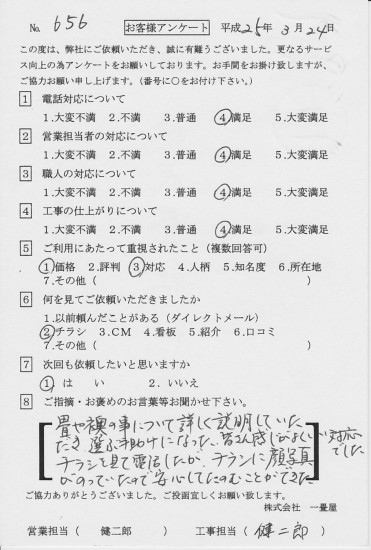 No. 656 お客様アンケート 平成25年3月24日
この度は、弊社にご依頼いただき、誠に有難うございました。更なるサービ
ス向上の為アンケートをお願いしております。お手間をお掛け致しますが、
ご協力お願い申し上げます。(番号に○をお付け下さい。)
1 電話対応について
1.大変不満 2.不満 3.普通 4.満足 5.大変満足
2 営業担当者の対応について
1.大変不満 2.不満 3.普通 4.満足 5.大変満足
3 職人の対応について
1.大変不満 2.不満 3.普通 4.満足 5.大変満足
4 工事の仕上がりについて
1.大変不満 2.不満 3.普通 4.満足 5.大変満足
5 ご利用にあたって重視されたこと(複数回答可)
1.価格 2.評判 3.対応 4.人柄 5.知名度 6.所在地
7.その他( )
6 何を見てご依頼いただきましたか
1.以前頼んだことがある(ダイレクトメール)
2.チラシ 3.CM 4.看板 5.紹介 6.口コミ
7.その他( )
7 次回も依頼したいと思いますか
1.は い 2.いいえ
8 ご指摘・お褒めのお言葉等お聞かせ下さい。
畳や襖の事について詳しく説明していた
だき選ぶ手助けになった、皆さん感じがよくいい対応でした
チラシを見て電話したが、チラシに顔写真
がのっていたので安心してたのむことができた
ご協力ありがとうございました。ご投函宜しくお願い致します。
株式会社 一畳屋
営業担当( 健二郎 ) 工事担当( 健二郎 )